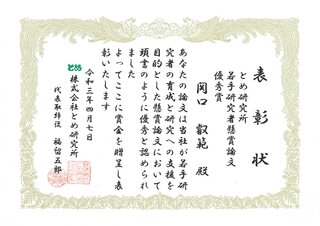 表彰状
とめ研究所
若手研究者懸賞論文
優秀賞
関口 叡範 殿
あなたの論文は当社が若手研
究者の育成と研究への支援を
目的とした懸賞論文において
頭書のように優秀と認められ
ました
よってここに賞金を贈呈し表
彰いたします
令和三年四月七日
とめ
株式会社とめ研究所
代表取締役 福留五郎